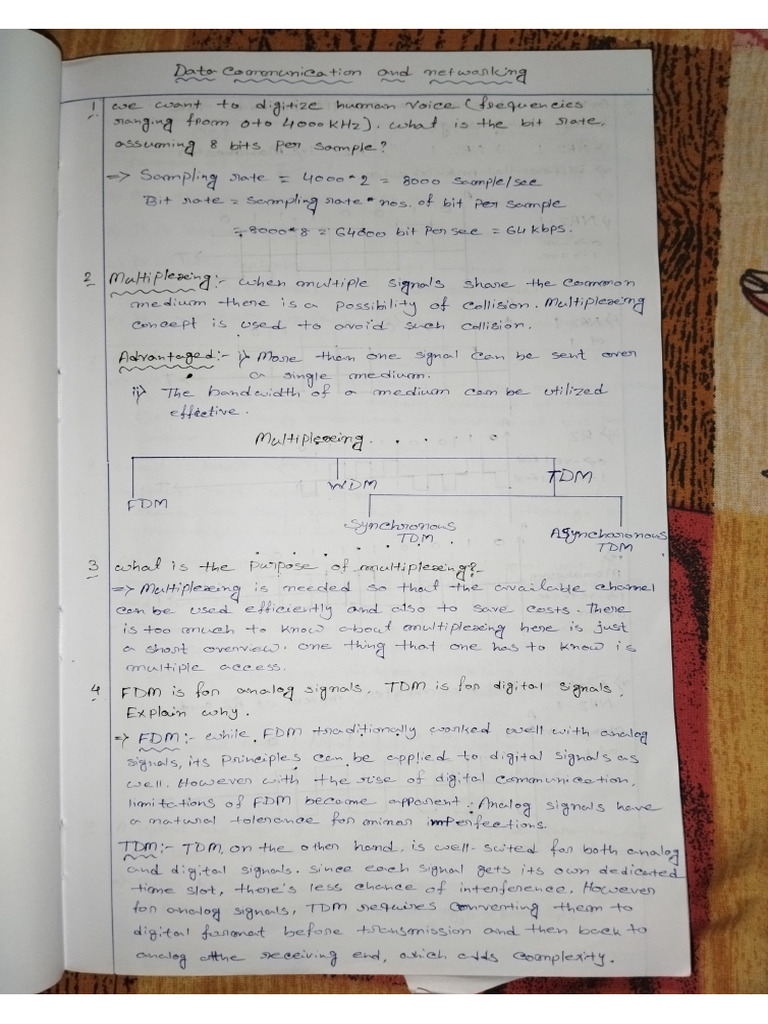 Data Communication and networking
1 we want to digitize human voice (frequencies
ranging from 0 to 4000 kHz). what is the bit rate,
assuming 8 bits per sample?
=> Sampling rate = 4000*2 = 8000 sample/sec
Bit rate = sampling rate * nos. of bit per sample
= 8000*8 = 64000 bit per sec = 64 kbps.
2 Multiplexing:- when multiple signals share the common
medium there is a possibility of collision. Multiplexing
concept is used to avoid such collision.
Advantaged:- i> More than one signal can be sent over
a single medium.
ii> The bandwidth of a medium can be utilized
effective.
Multiplexing.
FDM WDM TDM
Synchronous TDM Asynchronous TDM
3 what is the purpose of multiplexing?-
=> Multiplexing is needed so that the available channel
can be used efficiently and also to save costs. There
is too much to know about multiplexing here is just
a short overview. one thing that one has to know is
multiple access.
4 FDM is for analog signals, TDM is for digital signals,
Explain why.
=> FDM:- while FDM traditionally worked well with analog
signals, its principles can be applied to digital signals as
well. However with the rise of digital communication,
limitations of FDM become apparent. Analog signals have
a natural tolerance for minor imperfections.
TDM:- TDM, on the other hand, is well-suited for both analog
and digital signals. since each signal gets its own dedicated
time slot, there's less chance of interference. However
for analog signals, TDM requires converting them to
digital format before transmission and then back to
analog at the receiving end, which adds complexity.